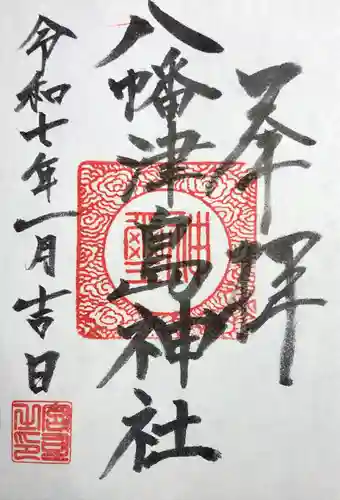 奉拝
八幡津島神社
令和七年一月吉日